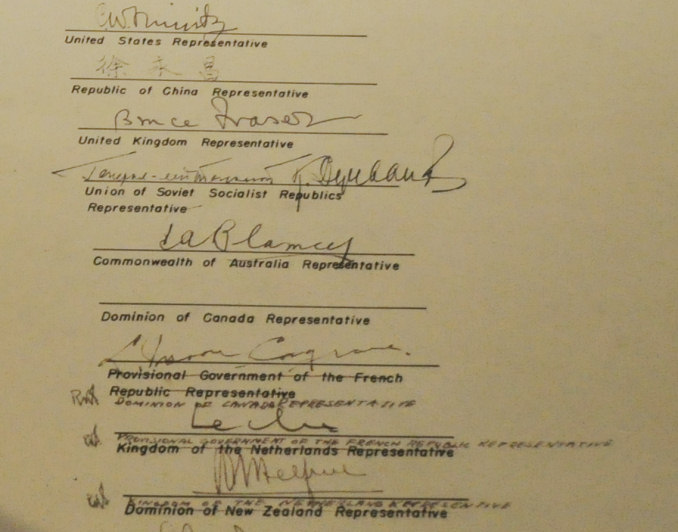 C.W. Nimitz
United States Representative
徐永昌
Republic of China Representative
Bruce Fraser
United Kingdom Representative
Union of Soviet Socialist Republics
Representative
T.A. Blamey
Commonwealth of Australia Representative
Dominion of Canada Representative
L. Moore Cosgrave.
Provisional Government of the French
Republic Representative
DOMINION OF CANADA REPRESENTATIVE
Leclerc
PROVISIONAL GOVERNMENT OF THE FRENCH REPUBLIC REPRESENTATIVE
Kingdom of the Netherlands Representative
Helfrich
KINGDOM OF THE NETHERLANDS REPRESENTATIVE
Dominion of New Zealand Representative